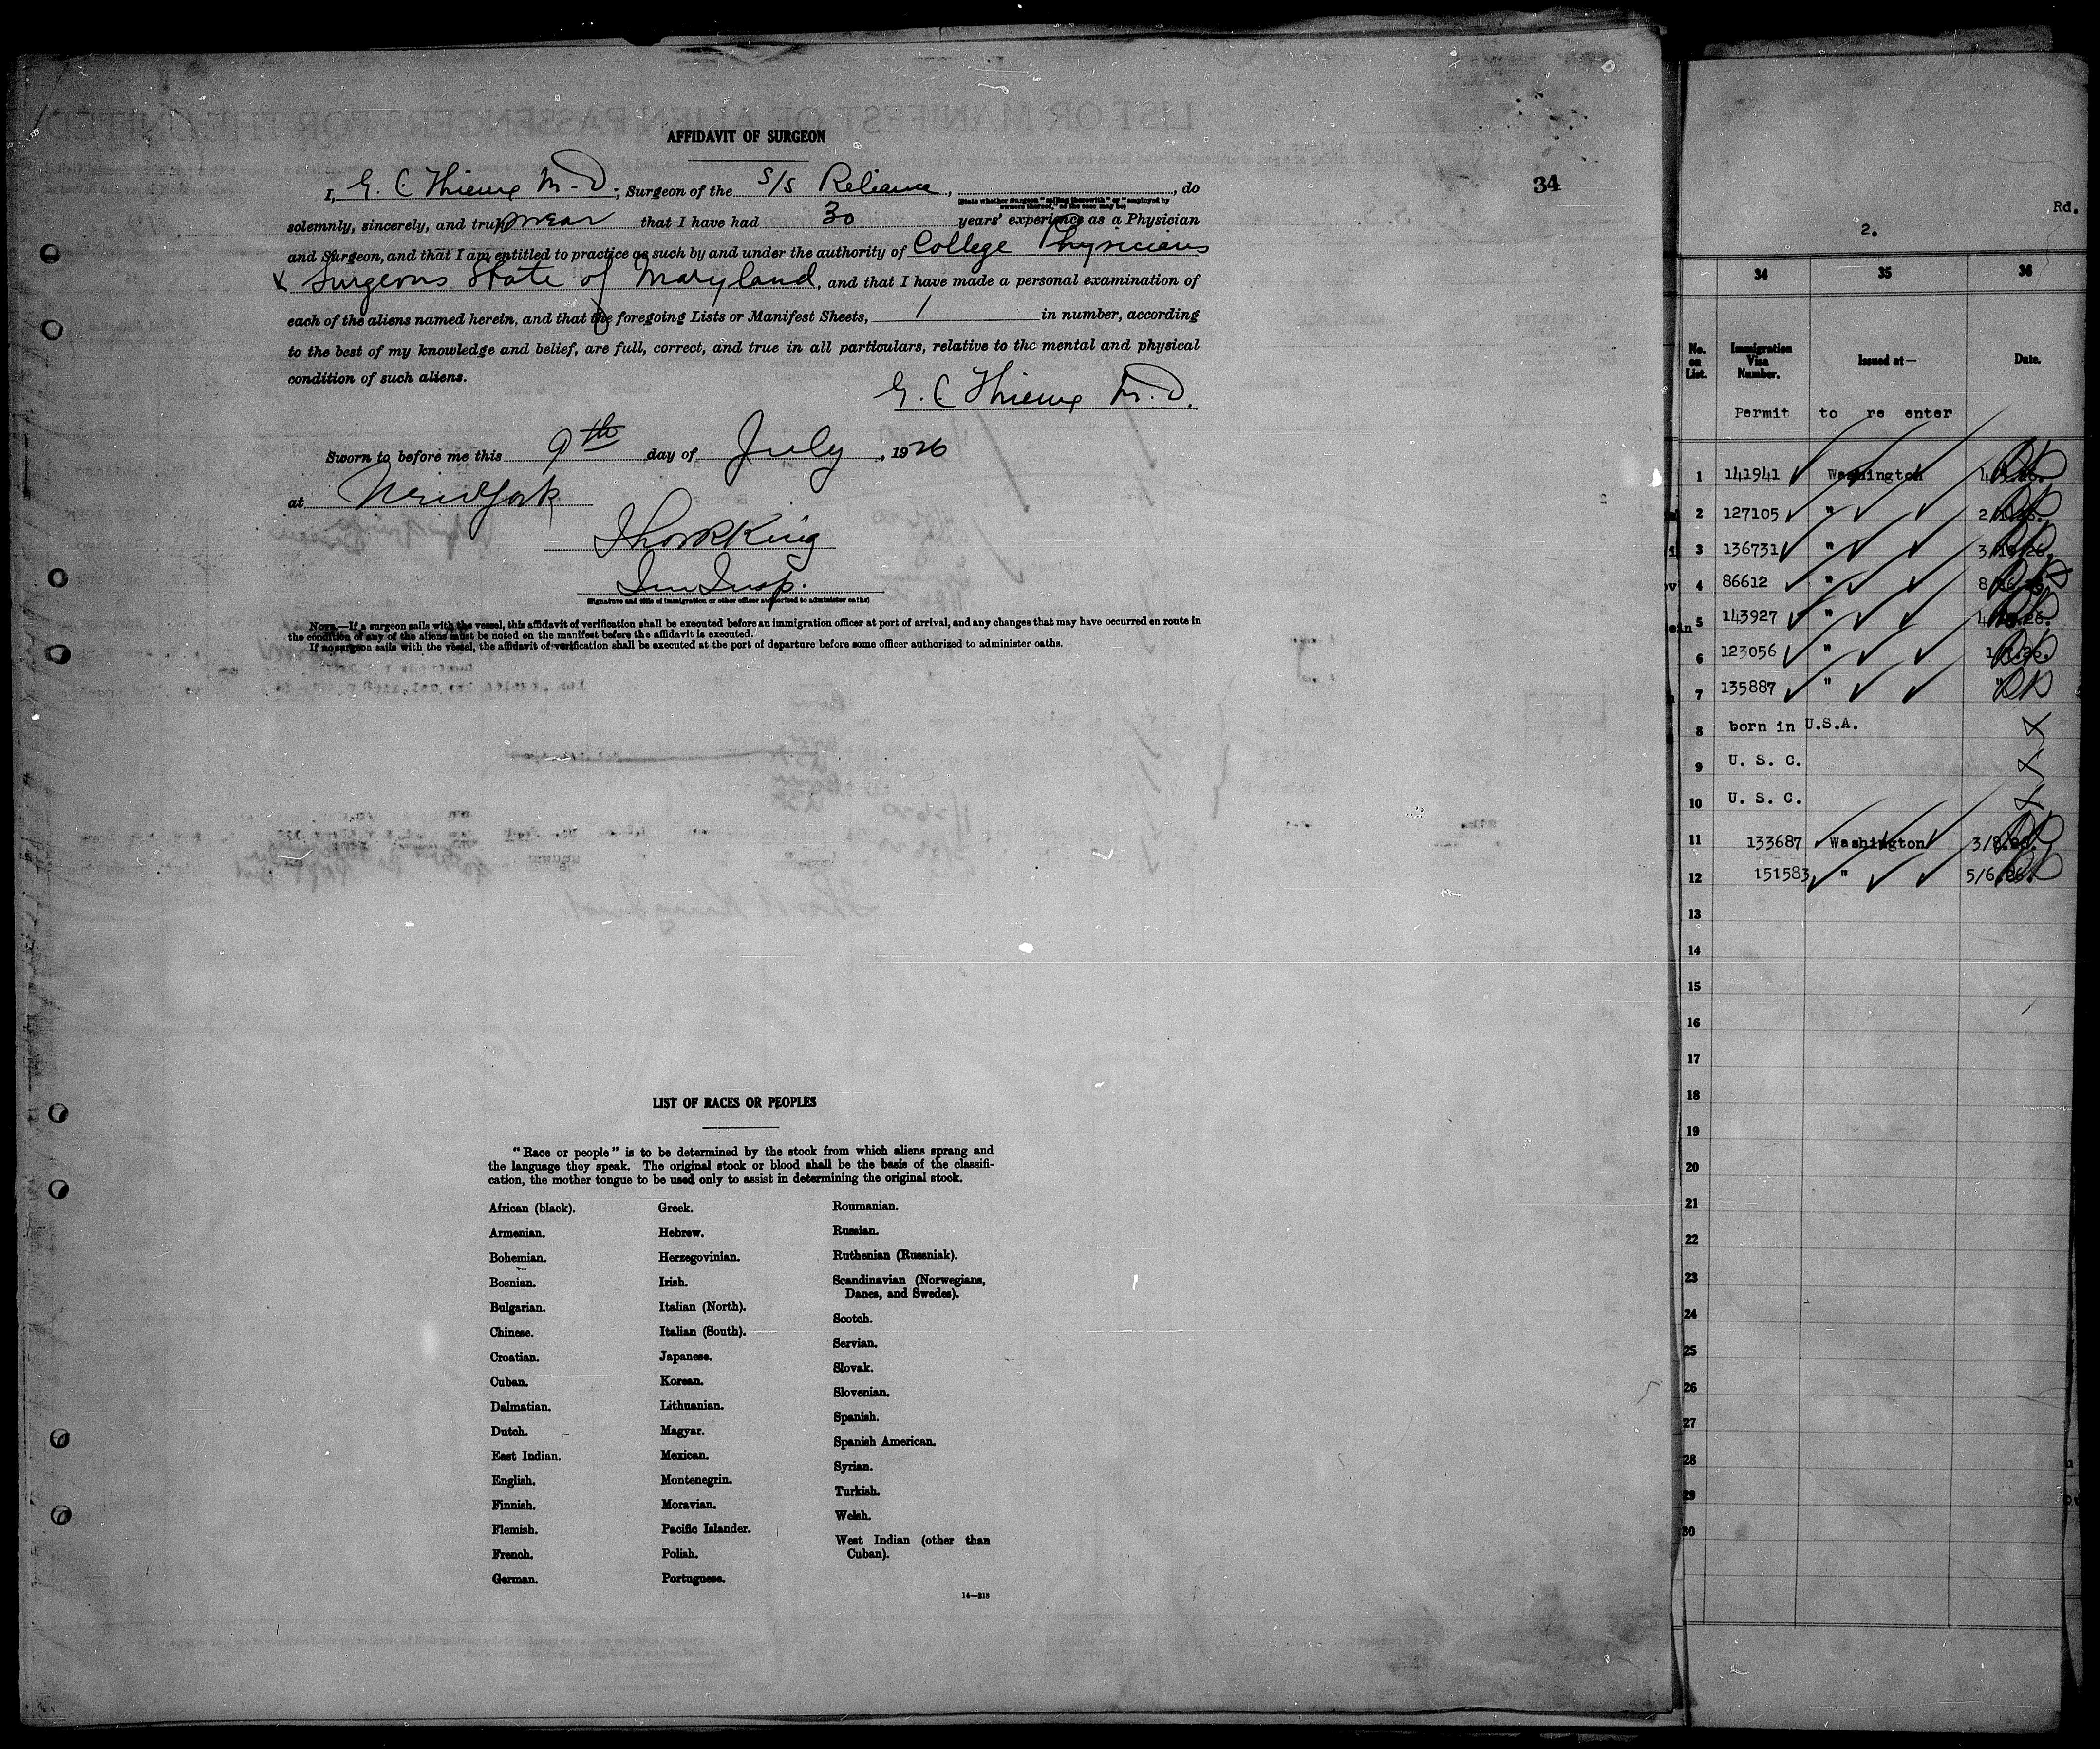 AFFIDAVIT OF SURGEON
I, G. C. Thieme M.D., Surgeon of the S/S Reliance, , do
(State whether Surgeon "sailing therewith" or "employed by owners thereof," as the case may be)
solemnly, sincerely, and truly swear that I have had 30 years' experience as a Physician
and Surgeon, and that I am entitled to practice as such by and under the authority of College Physicians
& Surgeons State of Maryland, and that I have made a personal examination of
each of the aliens named herein, and that the foregoing Lists or Manifest Sheets, 1 in number, according
to the best of my knowledge and belief, are full, correct, and true in all particulars, relative to the mental and physical
condition of such aliens.
G. C. Thieme M.D.
Sworn to before me this 9th day of July, 1926
at New York
King
Imm Insp.
(Signature and title of immigration or other officer authorized to administer oaths)
NOTE.—If a surgeon sails with the vessel, this affidavit of verification shall be executed before an immigration officer at port of arrival, and any changes that may have occurred en route in
the condition of any of the aliens must be noted on the manifest before the affidavit is executed.
If no surgeon sails with the vessel, the affidavit of verification shall be executed at the port of departure before some officer authorized to administer oaths.
34
LIST OF RACES OR PEOPLES
"Race or people" is to be determined by the stock from which aliens sprang and
the language they speak. The original stock or blood shall be the basis of the classifi-
cation, the mother tongue to be used only to assist in determining the original stock.
African (black).
Armenian.
Bohemian.
Bosnian.
Bulgarian.
Chinese.
Croatian.
Cuban.
Dalmatian.
Dutch.
East Indian.
English.
Finnish.
Flemish.
French.
German.
Greek.
Hebrew.
Herzegovinian.
Irish.
Italian (North).
Italian (South).
Japanese.
Korean.
Lithuanian.
Magyar.
Mexican.
Montenegrin.
Moravian.
Pacific Islander.
Polish.
Portuguese.
Roumanian.
Russian.
Ruthenian (Russniak).
Scandinavian (Norwegians,
Danes, and Swedes).
Scotch.
Servian.
Slovak.
Slovenian.
Spanish.
Spanish American.
Syrian.
Turkish.
Welsh.
West Indian (other than
Cuban).
14—213
Rd.
2.
34 35 36
No. on List. Immigration Visa Number. Issued at— Date.
Permit to re enter
1 141941 Washington
2 127105 "
3 136731 "
4 86612 "
5 143927 "
6 123056 "
7 135887 " "
8 born in U.S.A.
9 U. S. C.
10 U. S. C.
11 133687 Washington
12 151583 "
13
14
15
16
17
18
19
20
21
22
23
24
25
26
27
28
29
30